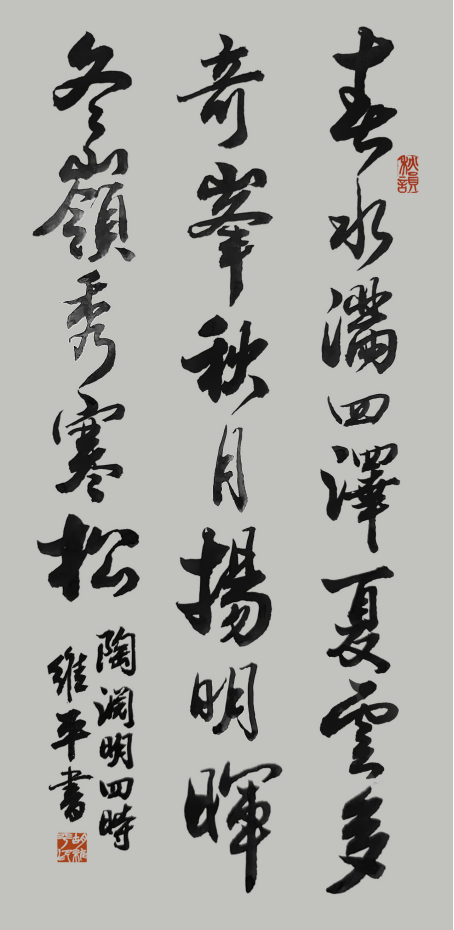 春水滿四澤夏雲多
奇峯秋月揚明暉
冬嶺秀寒松
陶淵明四時
維平書